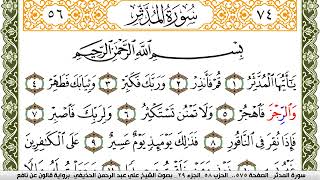 ٧٤ سُورَةُ الْمُدَّثِّرِ ٥٦
بِسْمِ اللَّهِ الرَّحْمَٰنِ الرَّحِيمِ
يَٰٓأَيُّهَا الْمُدَّثِّرُ ١ قُمْ فَأَنذِرْ ٢ وَرَبَّكَ فَكَبِّرْ ٣ وَثِيَابَكَ فَطَهِّرْ ٤
وَالرِّجْزَ فَاهْجُرْ ٥ وَلَا تَمْنُن تَسْتَكْثِرُ ٦ وَلِرَبِّكَ فَاصْبِرْ ٧
فَإِذَا نُقِرَ فِي النَّاقُورِ ٨ فَذَٰلِكَ يَوْمَئِذٍ يَوْمٌ عَسِيرٌ ٩ عَلَى الْكَٰفِرِينَ
سورة المدثر . الصفحة ٥٧٥.. الحزب ٥٨ . الجزء ٢٩ . بصوت الشيخ علي عبد الرحمن الحذيفي. برواية قالون عن نافع